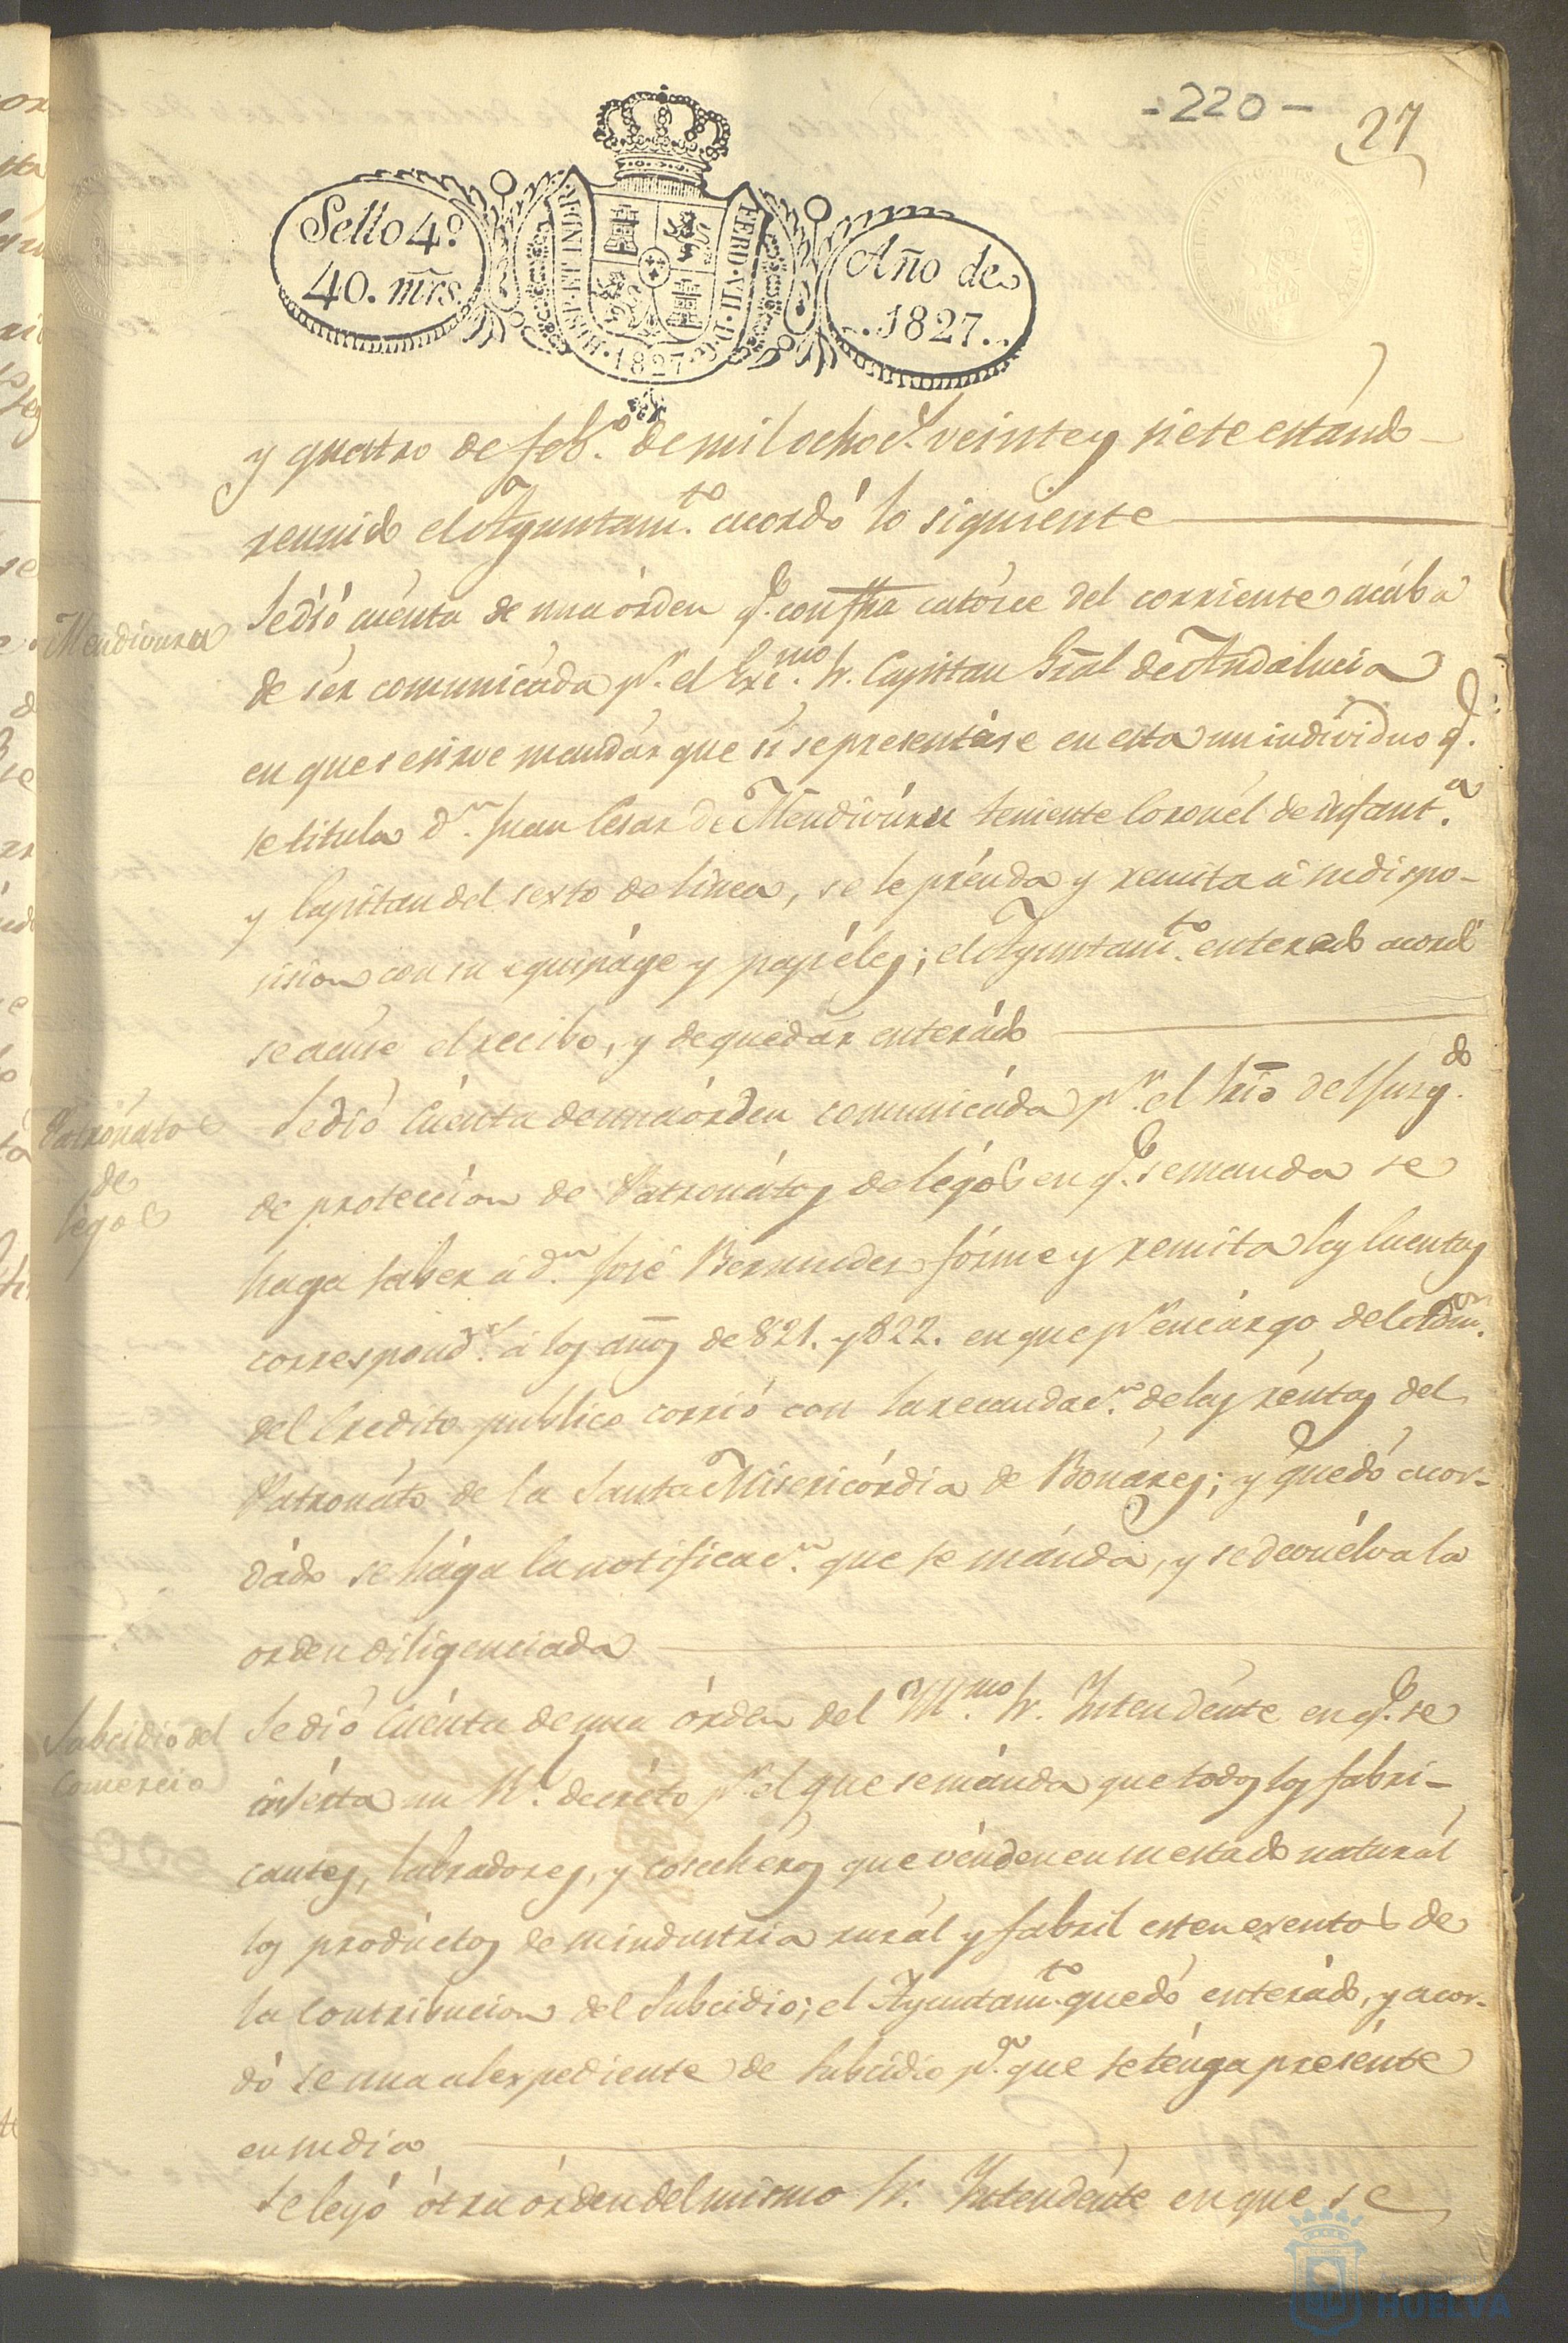 -220-
27
Sello 4º
40. mrs.
HISP. ET IND. R.
FERD. VII. D. G.
1827
Año de
..1827..
y quatro de febº. de mil ochocs. veinte y siete estando
reunido el Ayuntamto. acordó lo siguiente
Mendivuru
Se dió cuenta de una órden qe. con fha catórce del corriente acába
de ser comunicáda pr. el Excmo. Sr. Capitan Gral de Andalucia
en que se sirve mandár que si se presentáse en esta un individuo qe.
se titula dn. Juan Cesar de Mendivúru teniente Coronél de infanta.
y Capitan del sexto de linea, se le prénda y remita á su dispo-
sision con su equipáge y papéles; el Ayuntamto. enterado acordó
se acuse el recibo, y de quedár enterádo
Patronato
de
legos
Se dió Cuénta de una órden comunicáda pr. el Srio del Juzgdo.
de proteccion de Patronátos de légos en qe. se manda se
haga saber á dn. José Bermudes fórme y remita las Cuentas
correspondtes. á los años de 821. y 822. en que pr. encárgo del Admor.
del Credito publico corrió con la recaudacn. de las réntas del
Patronáto de la Santa Misericórdia de Bonáres; y quedó acor-
dádo se hága la notificacn. que se mánda, y se devuélva la
orden diligenciada
Subcidio del
Comercio
Se dió Cuénta de una órden del Yllmo. Sr. Intendénte en qe. se
insérta un Rl. decréto pr. el que se mánda que todos los fabri-
cantes, labradores, y cosechéros que vénden en su estado naturál
los prodúctos de su industria rurál y fabríl esten exentos de
la Contribucion del Subcidio; el Ayuntamto. quedó enterádo, y acor-
dó se una al expediente de Subcidio pa. que se ténga presénte
en su dia
Se leyó ótra órden del mismo Sr. Intendénte en que se
HUELVA